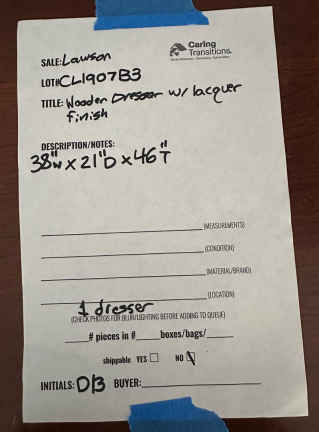 SALE: Lawson
Caring
Transitions
LOT# CL1907B3
TITLE: Wooden Dresser w/ lacquer
finish
DESCRIPTION/NOTES:
38"W x 21"D x 46"T
(MEASUREMENTS)
(CONDITION)
(MATERIAL/BRAND)
(LOCATION)
1 dresser
(CHECK PHOTOS FOR BLUR/LIGHTING BEFORE ADDING TO QUEUE)
# pieces in # boxes/bags/
shippable YES NO
INITIALS: DB BUYER: